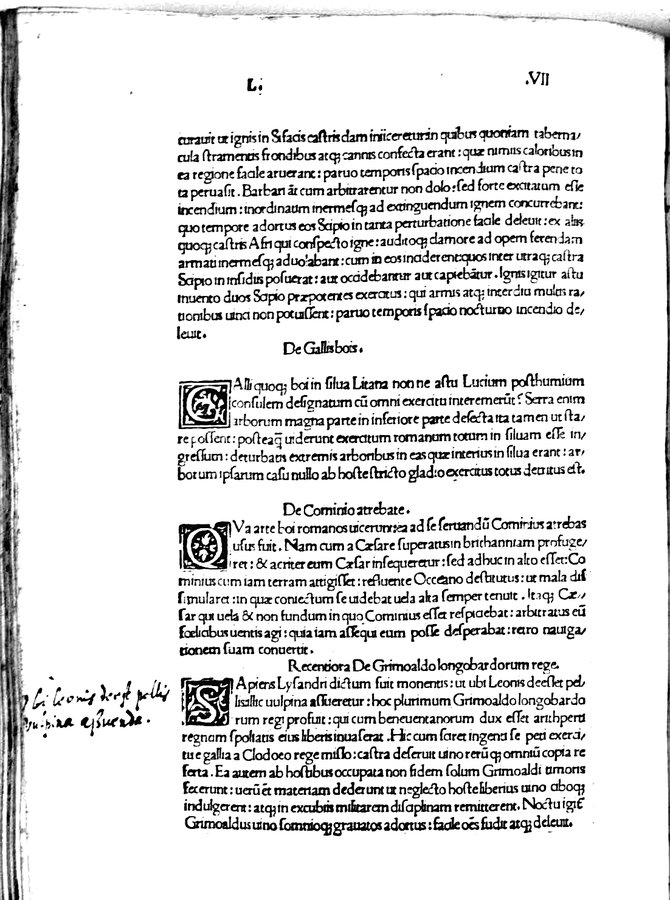 L.
.VII
curauit ut ignis in Sifacis castris clam iniiceretur:in quibus quoniam taberna/
cula stramentis frondibus atq; cannis confecta erant : quæ nimiis caloribus in
ea regione facile aruerant : paruo temporis spacio incendium castra pene to
ta peruasit . Barbari āt cum arbitrarentur non dolo : sed forte excitatum esse
incendium : inordinatim inermesq; ad extinguendum ignem concurrebant:
quo tempore adortus eos Scipio in tanta perturbatione facile deleuit : ex aliis
quoq; castris Afri qui conspecto igne : auditoq; clamore ad opem ferendam
armati inermesq; aduolabant : cum in eos inciderent:quos inter utraq; castra
Scipio in insidiis posuerat : aut occidebantur aut capiebātur . Ignis igitur astu
inuento duos Scipio præpotentes exercitus : qui armis atq; interdiu multis ra/
tionibus uinci non potuissent : paruo temporis spacio nocturno incendio de/
leuit .
De Gallis bois .
GAlli quoq; boi in silua Litana non ne astu Lucium posthumium
consulem designatum cū omni exercitu interemerūt ? Serra enim
arborum magna parte in inferiore parte desecta ita tamen ut sta/
re possent : posteaq̄ uiderunt exercitum romanum totum in siluam esse in/
gressum : deturbatis extremis arboribus in eas quæ interius in silua erant : ar/
borum ipsarum casu nullo ab hoste stricto gladio exercitus totus detritus est.
De Cominio atrebate .
QVa arte boi romanos uicerunt:ea ad se seruandū Cominius atrebas
usus fuit . Nam cum a Cæsare superatus in brithanniam profuge/
ret : & acriter eum Cæsar insequeretur : sed adhuc in alto esset:Co
minius cum iam terram attigisset : refluente Occeano destitutus : ut mala dis
simularet : in quæ coniectum se uidebat uela alta semper tenuit . Itaq; Cæ/
sar qui uela & non fundum in quo Cominius esset respiciebat : arbitratus eū
fœlicibus uentis agi : quia iam assequi eum posse desperabat : retro nauiga/
tionem suam conuertit .
Recentiora De Grimoaldo longobardorum rege.
SApiens Lysandri dictum fuit monentis : ut ubi Leonis deesset pel/
lis:illic uulpina assueretur : hoc plurimum Grimoaldo longobardo
rum regi profuit : qui cum beneuentanorum dux esset arithperti
regnum spoliatis eius liberis inuaserat . Hic cum sciret ingenti se peti exerci/
tu e gallia a Clodoeo rege misso : castra deseruit uino rerūq; omniū copia re
ferta . Ea autem ab hostibus occupata non fidem solum Grimoaldi timoris
fecerunt : uerū et materiam dederunt ut neglecto hoste liberius uino ciboq;
indulgerent : atq; in excubiis militarem disciplinam remitterent . Noctu igit̄
Grimoaldus uino somnioq; grauatos adortus : facile oēs fudit atq; deleuit.
Vbi leonis deest pellis
Vulpina assuenda .